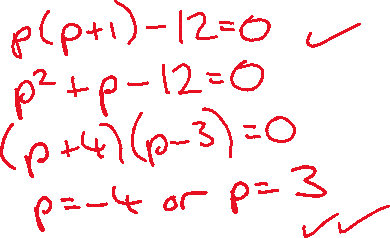 p(p+1)-12=0
p²+p-12=0
(p+4)(p-3)=0
p=-4 or p=3